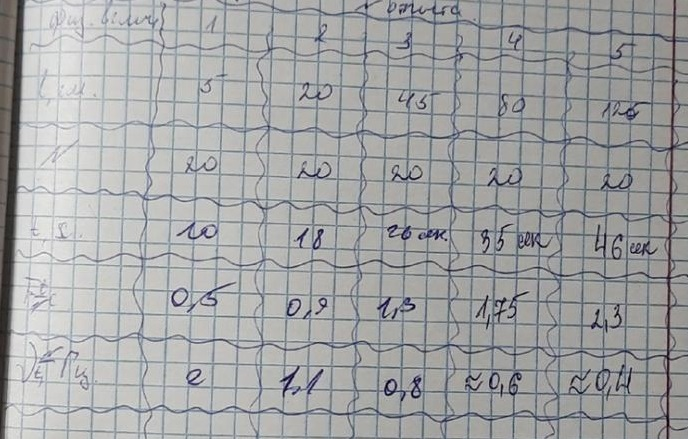 Физ. велич 1 2 3 4 5
l, см. 5 20 45 80 125
N 20 20 20 20 20
t, с. 10 18 26 сек 35 сек 46 сек
0,5 0,9 1,3 1,75 2,3
Гц. 2 1,1 0,8 ≈0,6 ≈0,4